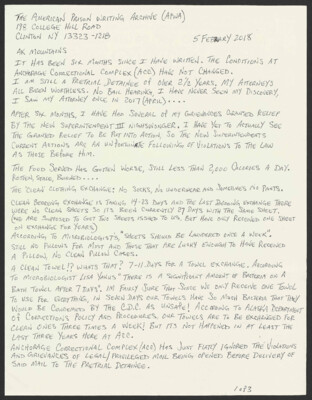 The American Prison Writing Archive (APWA)
198 College Hill Road
Clinton NY 13323-1218
5 February 2018
AK Mountains
It has been six months since I have written. The conditions at
Anchorage Correctional Complex (ACC) have not changed.
I am still a pretrial detainee of over 2½ years, my attorneys
all been worthless. No bail hearing, I have never seen my discovery,
I saw my attorney once in 2017 (April)....
After ten months, I have had several of my grievances granted relief
By the new Superintendent III I have yet to actually see
the granted relief to be put into action, so the new Superintendents
current actions are an following of violations to the law
as those before him.
The food served has gotten worse, still less than 2,000 calories a day.
rotten, stale, rancid.....
The clean clothing exchange? No socks, no underwear and sometimes no pants.
Clean bedding exchange is taking 14-23 days and the last bedding exchange there
were no clean sheets so it's been currently 27 days with the same sheet.
(We are supposed to get six sheets issued to us, but have only received one sheet
on exchange for years).
According to microbiologists, "sheets should be laundered once a week".
Still no pillows for most and those that are lucky enough to have received
a pillow, no clean pillow cases.
A clean towel?? What's that? 7-11 days for a towel exchange, according
to microbiologist Lisa "There is a significant amount of bacteria on a
bath towel after 7 days". I'm fairly sure that since we only receive one towel
to use for everything, in seven days our towels have so much bacteria that they
would be condemned by the C.D.C. as unsafe! According to Alaska Department
of Corrections policy and procedures, our towels are to be exchanged for
clean ones three times a week! But it's not happened in at least the
last three years here at ACC.
Anchorage Correctional Complex (ACC) has just plain ignored the violations
and grievances of legal/privileged mail being opened before delivery of
said mail to the pretrial detainee.
1 of 3